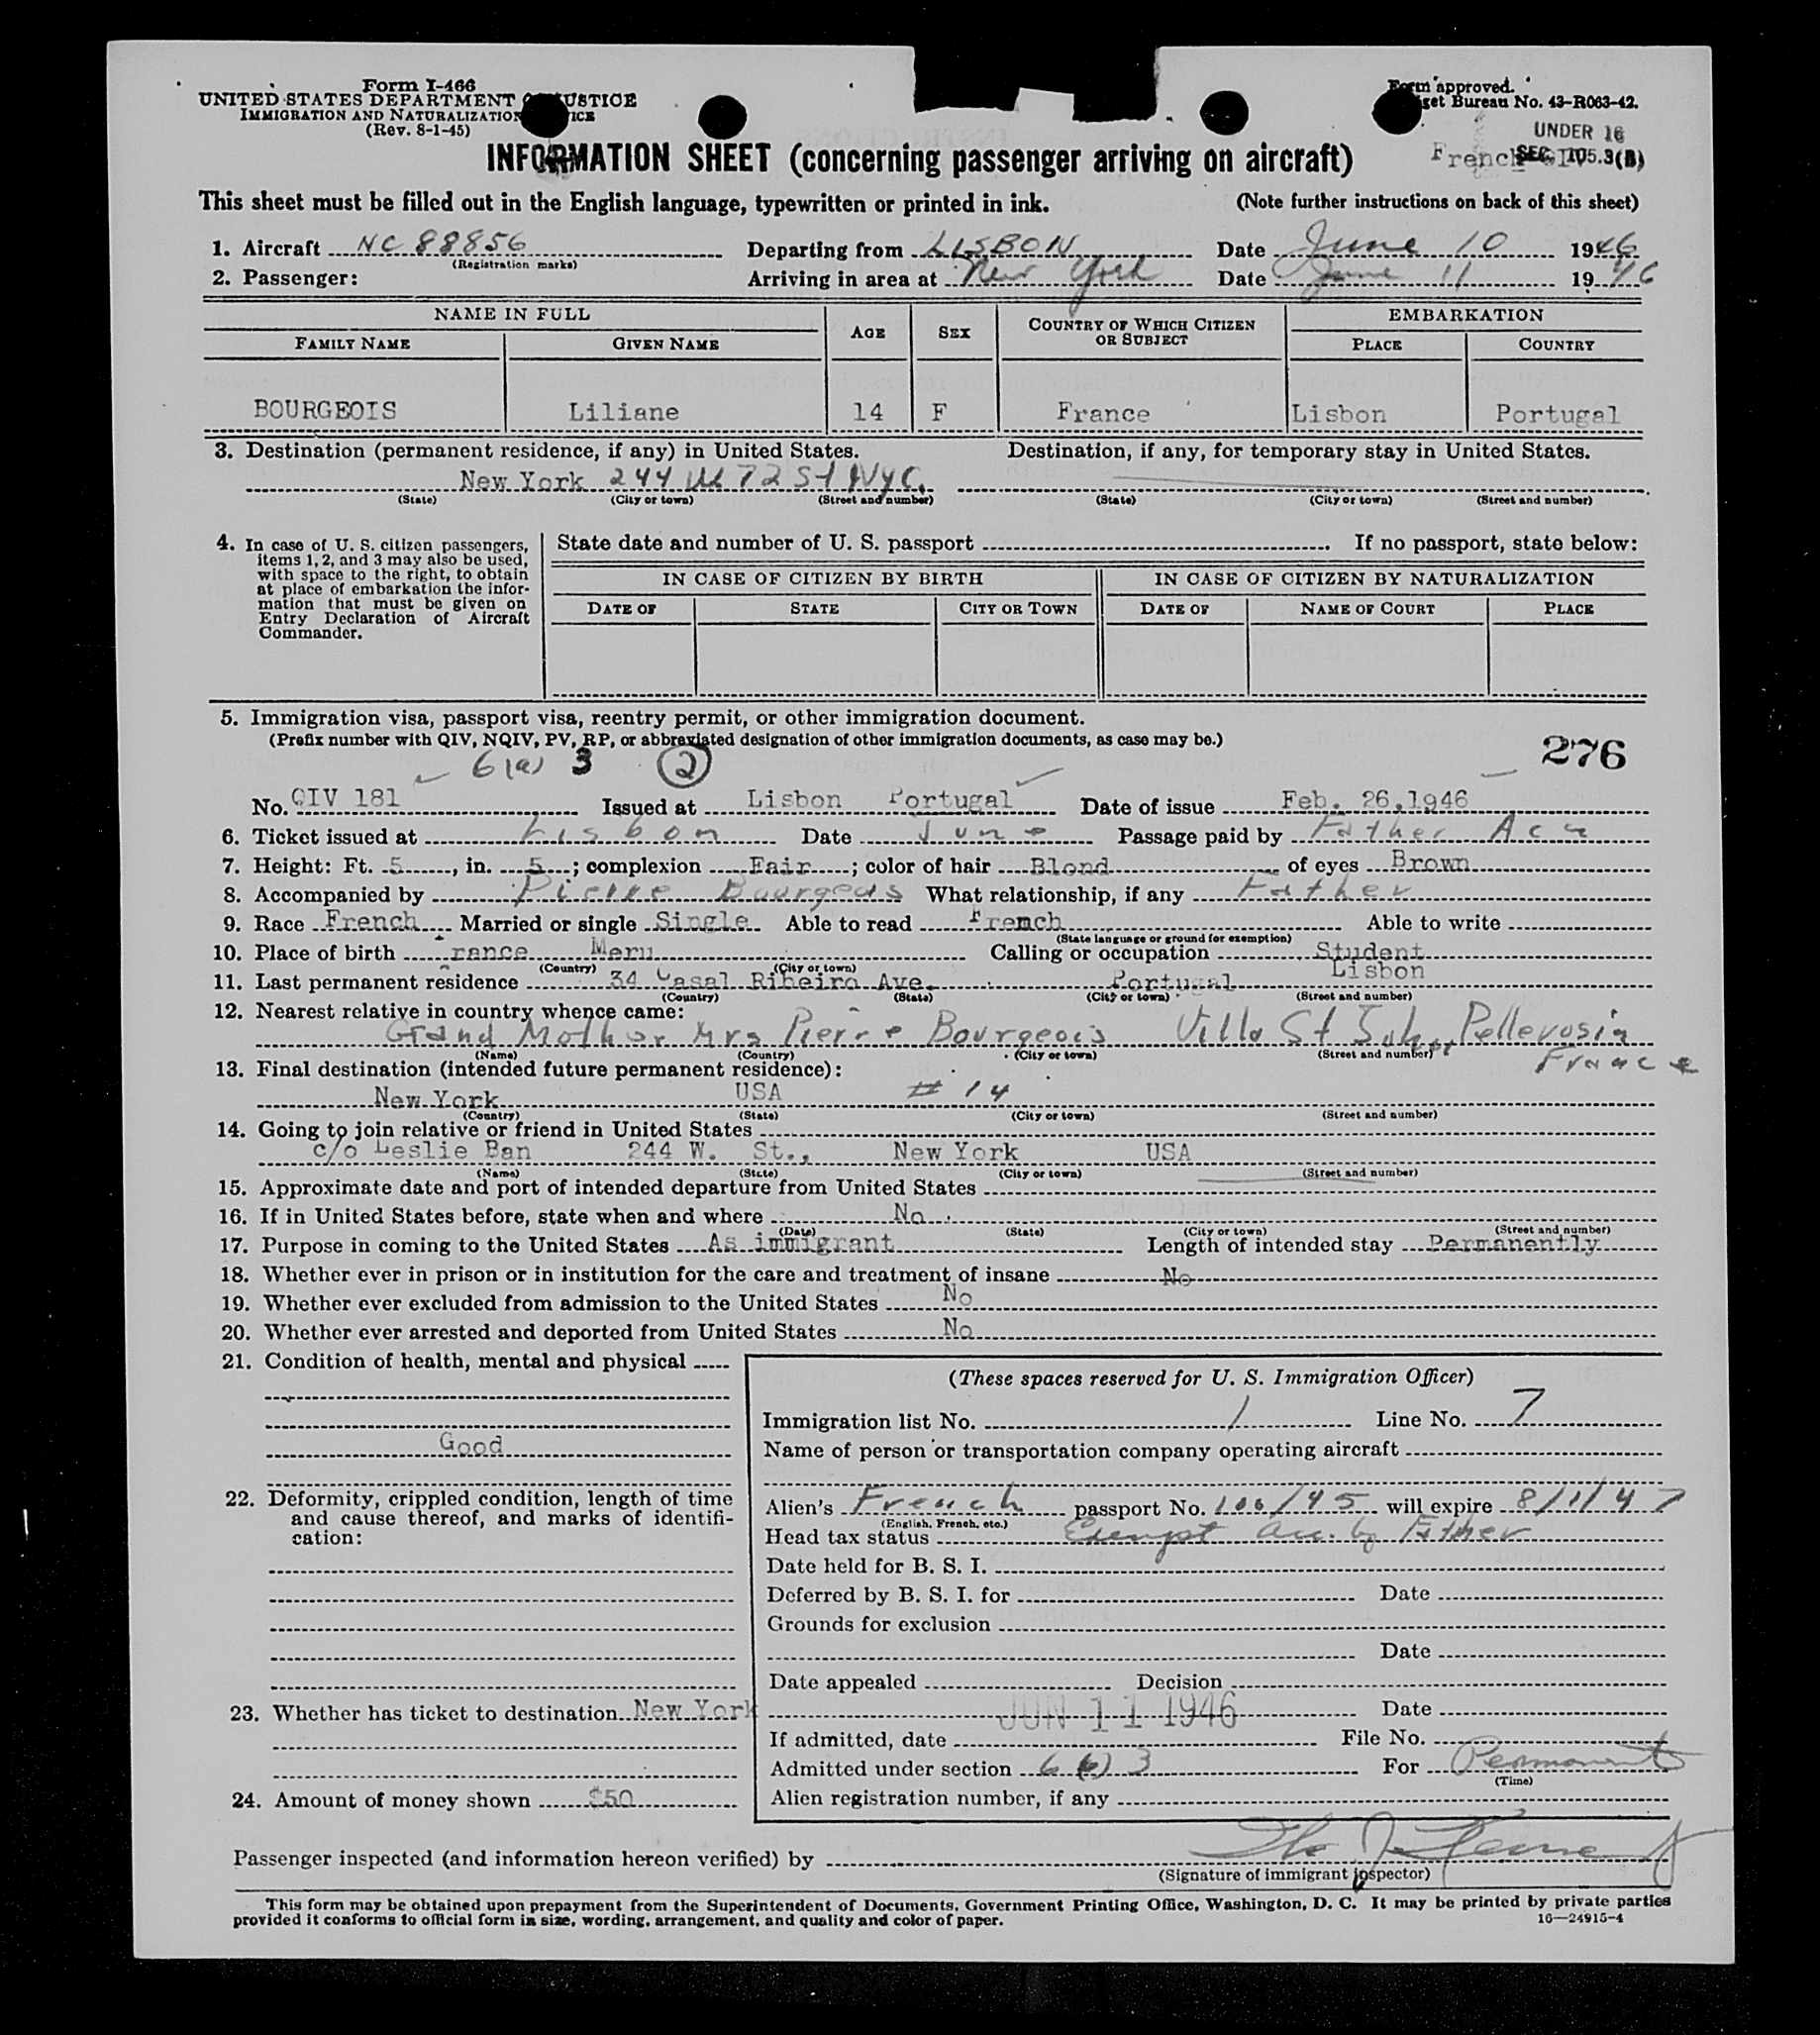 Form I-466
UNITED STATES DEPARTMENT OF JUSTICE
IMMIGRATION AND NATURALIZATION SERVICE
(Rev. 8-1-45)
Form approved.
Budget Bureau No. 43-R063-42.
UNDER 16
SEC. 105.3(B)
French
INFORMATION SHEET (concerning passenger arriving on aircraft)
This sheet must be filled out in the English language, typewritten or printed in ink. (Note further instructions on back of this sheet)
1. Aircraft NC 88856 Departing from LISBON Date June 10 1946
(Registration marks)
2. Passenger: Arriving in area at New York Date June 11 1946
NAME IN FULL AGE SEX COUNTRY OF WHICH CITIZEN OR SUBJECT EMBARKATION
FAMILY NAME GIVEN NAME PLACE COUNTRY
BOURGEOIS Liliane 14 F France Lisbon Portugal
3. Destination (permanent residence, if any) in United States. Destination, if any, for temporary stay in United States.
New York 244 W 72 St NYC.
(State) (City or town) (Street and number) (State) (City or town) (Street and number)
4. In case of U. S. citizen passengers, items 1, 2, and 3 may also be used, with space to the right, to obtain at place of embarkation the information that must be given on Entry Declaration of Aircraft Commander.
State date and number of U. S. passport . If no passport, state below:
IN CASE OF CITIZEN BY BIRTH IN CASE OF CITIZEN BY NATURALIZATION
DATE OF STATE CITY OR TOWN DATE OF NAME OF COURT PLACE
5. Immigration visa, passport visa, reentry permit, or other immigration document.
(Prefix number with QIV, NQIV, PV, RP, or abbreviated designation of other immigration documents, as case may be.)
276
6(a) 3 2
No. QIV 181 Issued at Lisbon Portugal Date of issue Feb. 26,1946
6. Ticket issued at Lisbon Date June Passage paid by Father Acc
7. Height: Ft. 5, in. 5; complexion Fair; color of hair Blond of eyes Brown
8. Accompanied by Pierre Bourgeois What relationship, if any Father
9. Race French Married or single Single Able to read French Able to write
(State language or ground for exemption)
10. Place of birth France Meru Calling or occupation Student
(Country) (City or town)
Lisbon
11. Last permanent residence 34 Casal Ribeiro Ave. Portugal
(Country) (State) (City or town) (Street and number)
12. Nearest relative in country whence came:
Grand Mother Mrs Pierre Bourgeois Villa St Pellevosin
France
(Name) (Country) (City or town) (Street and number)
13. Final destination (intended future permanent residence):
New York USA # 14
(Country) (State) (City or town) (Street and number)
14. Going to join relative or friend in United States
c/o Leslie Ban 244 W. St., New York USA
(Name) (State) (City or town) (Street and number)
15. Approximate date and port of intended departure from United States
16. If in United States before, state when and where No
(Date) (State) (City or town) (Street and number)
17. Purpose in coming to the United States As immigrant Length of intended stay Permanently
18. Whether ever in prison or in institution for the care and treatment of insane No
19. Whether ever excluded from admission to the United States No
20. Whether ever arrested and deported from United States No
21. Condition of health, mental and physical
Good
22. Deformity, crippled condition, length of time and cause thereof, and marks of identification:
23. Whether has ticket to destination New York
24. Amount of money shown $50
(These spaces reserved for U. S. Immigration Officer)
Immigration list No. 1 Line No. 7
Name of person or transportation company operating aircraft
Alien's French passport No. 106/45 will expire 8/1/47
(English, French, etc.)
Head tax status Exempt Acc. by Father
Date held for B. S. I.
Deferred by B. S. I. for Date
Grounds for exclusion
Date
Date appealed Decision
Date
JUN 11 1946
If admitted, date File No.
Admitted under section 6(a)3 For Permanent
(Time)
Alien registration number, if any
Passenger inspected (and information hereon verified) by
(Signature of immigrant inspector)
This form may be obtained upon prepayment from the Superintendent of Documents, Government Printing Office, Washington, D. C. It may be printed by private parties
provided it conforms to official form in size, wording, arrangement, and quality and color of paper.
16—24915-4